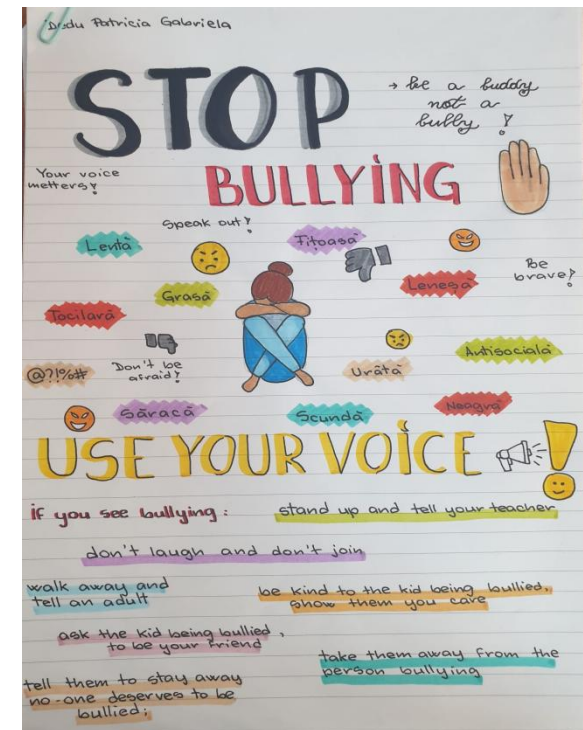 Dudu Patricia Gabriela
STOP
→ be a buddy
not a
bully !
BULLYING
Your voice
metters!
Speak out!
Lentă
Fițoasă
Leneșă
Be
brave!
Grasă
Tocilară
Don't be
afraid!
@?!%#
Urâtă
Antisocială
Săracă
Scundă
Neagră
USE YOUR VOICE !
if you see bullying :
stand up and tell your teacher
don't laugh and don't join
walk away and
tell an adult
be kind to the kid being bullied,
show them you care
ask the kid being bullied,
to be your friend
take them away from the
person bullying
tell them to stay away
no-one deserves to be
bullied;